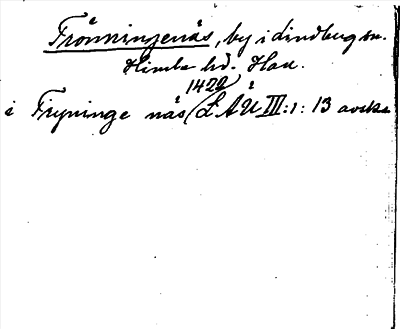 Frönningenäs, by i Lindbergs sn.
Himle hd. Hall.
1422
i Fryninge näs LÅU III:1: 13 avskr